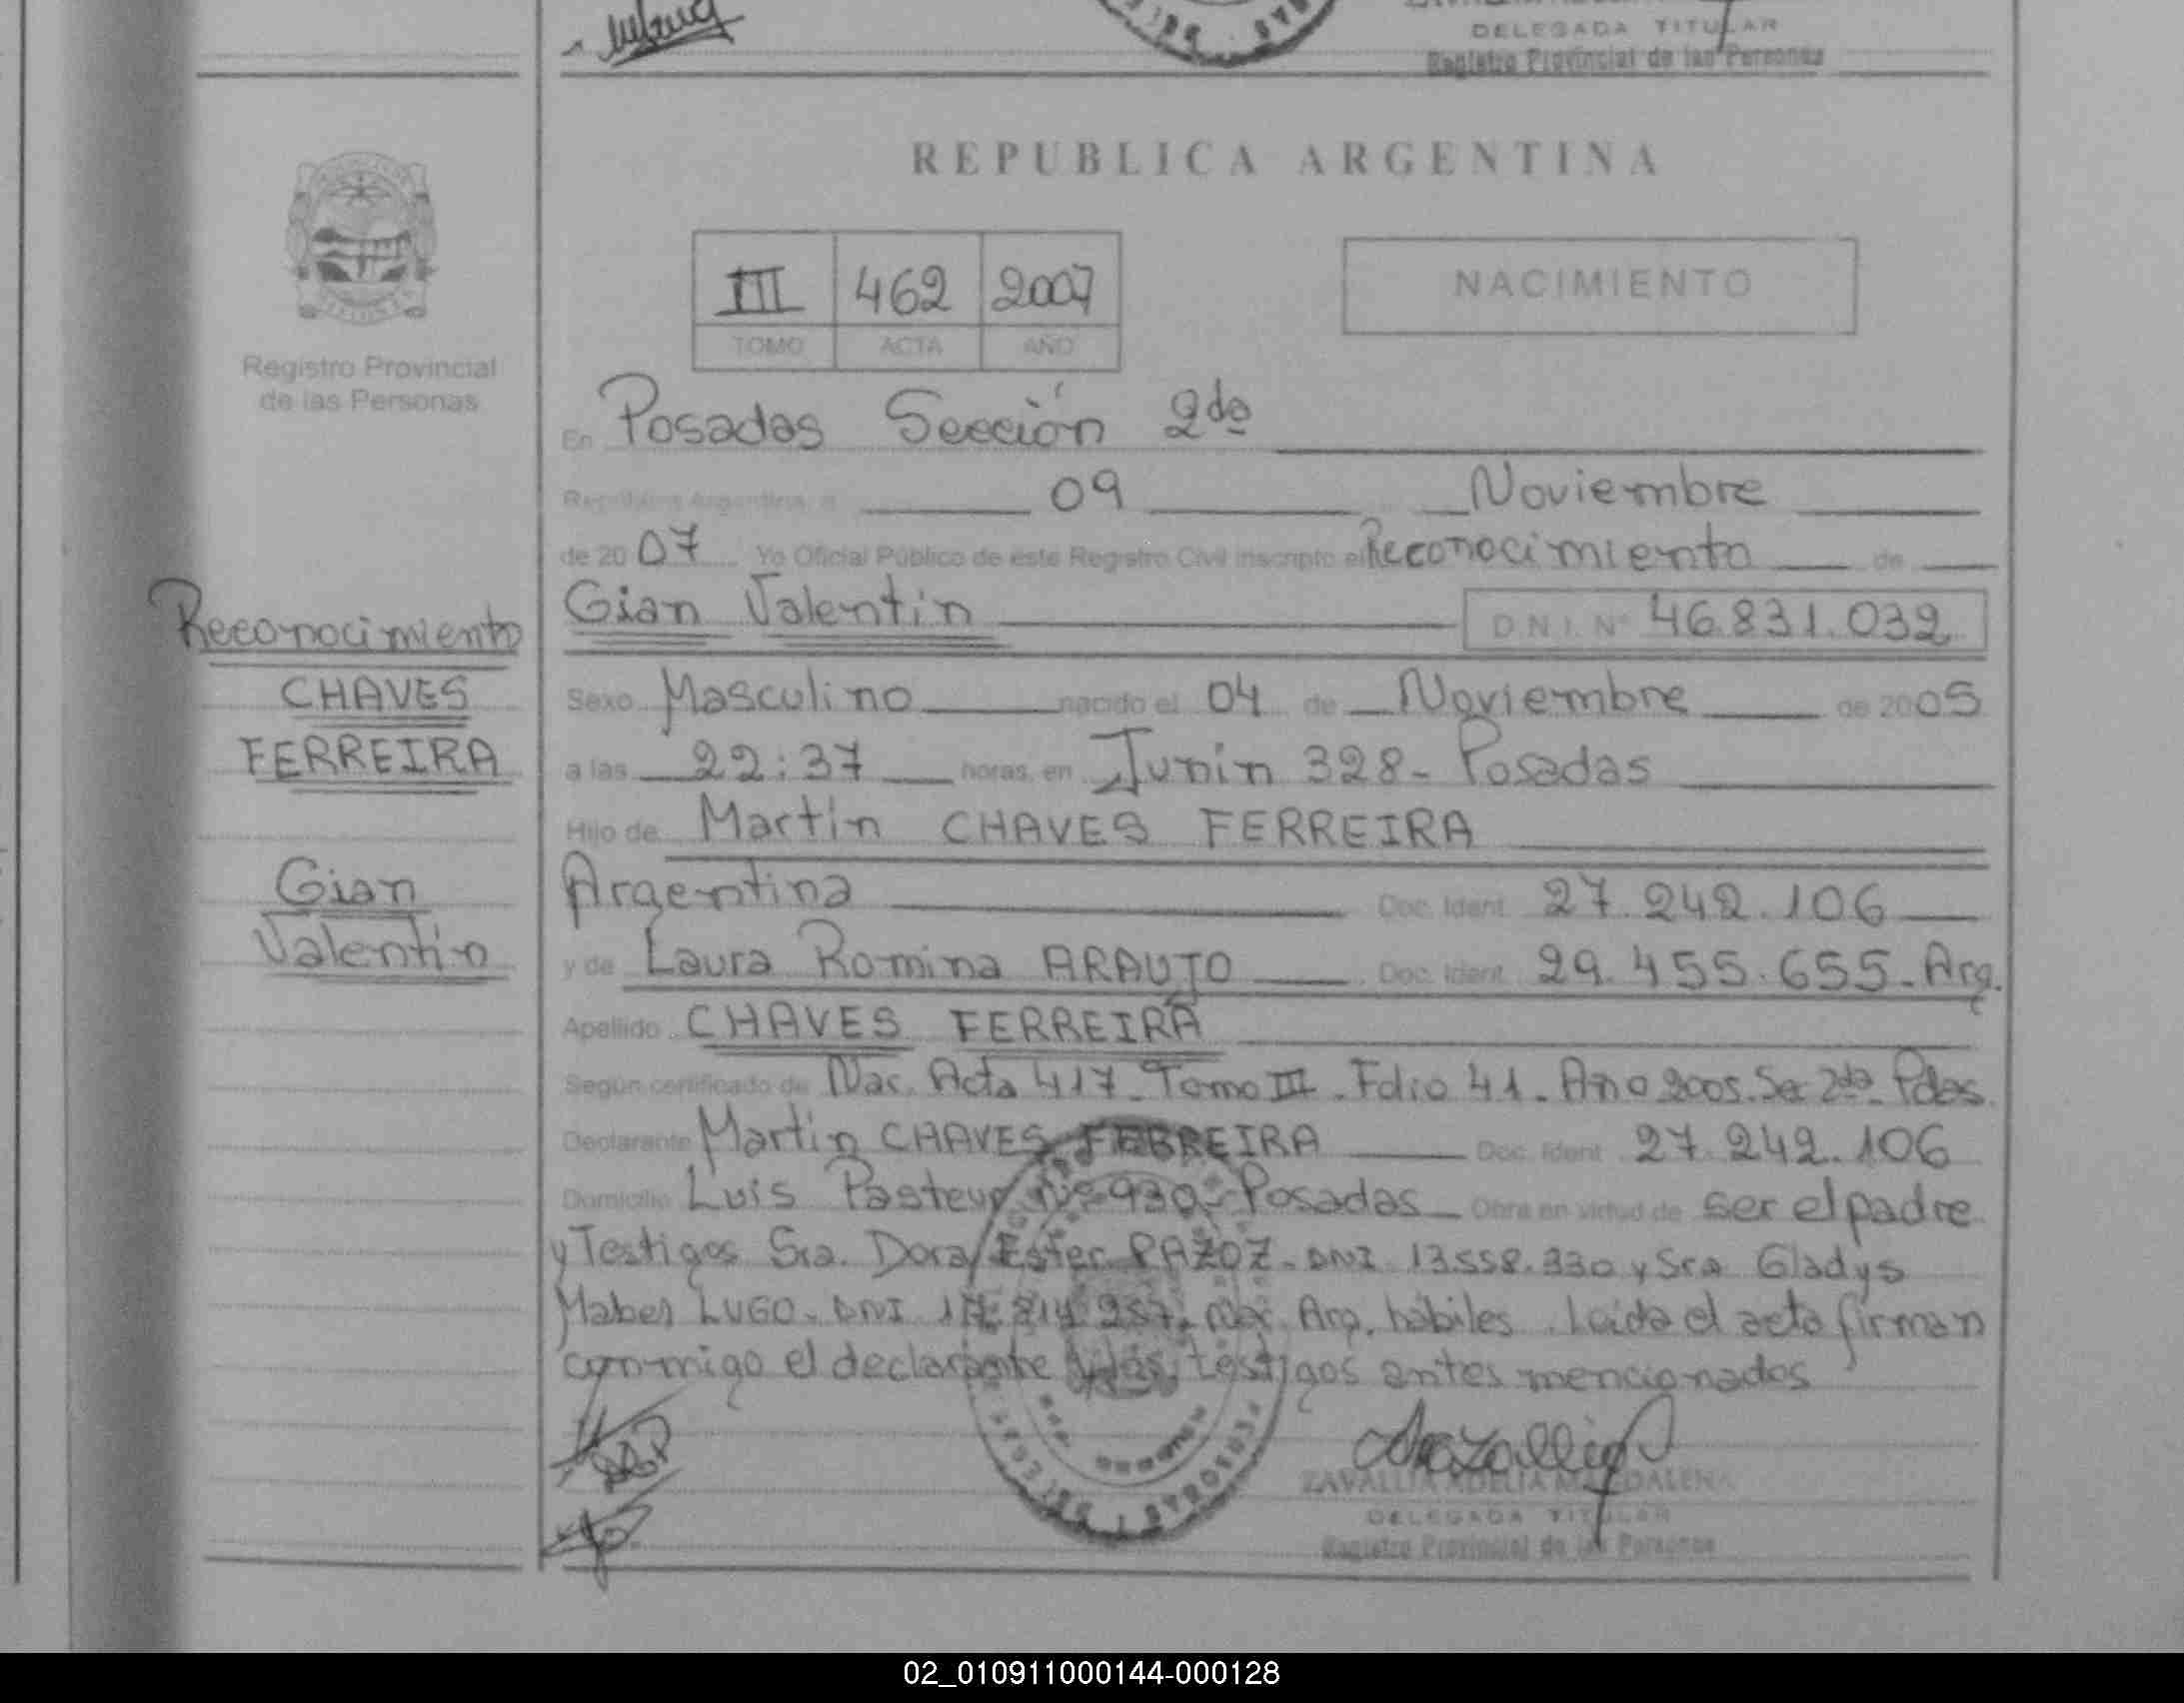 DELEGADA TITULAR
Registro Provincial de las Personas
REPUBLICA ARGENTINA
III 462 2007
TOMO ACTA AÑO
NACIMIENTO
Registro Provincial
de las Personas
Reconocimiento
CHAVES
FERREIRA
Gian
Valentín
En Posadas Sección 2da
República Argentina, a 09 Noviembre
de 2007 Yo Oficial Público de este Registro Civil inscripto el Reconocimiento de
Gian Valentín D.N.I. N° 46.831.032
Sexo Masculino nacido el 04 de Noviembre de 2005
a las 22:37 horas, en Junín 328- Posadas
Hijo de Martín CHAVES FERREIRA
Argentina Doc. Ident. 27.242.106
y de Laura Romina ARAUJO Doc. Ident. 29.455.655-Arg.
Apellido CHAVES FERREIRA
Según certificado de Nac. Acta 417- Tomo III - Folio 41 - Año 2005. Sec 2da- Pdas.
Declarante Martín CHAVES FERREIRA Doc. Ident. 27.242.106
Domicilio Luis Pasteur Nº 930- Posadas - Obra en virtud de ser el padre
y Testigos Sra. Dora Ester PAZOZ- DNI 13.558.330 y Sra Gladys
Mabel LUGO- DNI Arg. hábiles. Leída el acta firman
conmigo el declarante y los testigos antes mencionados
ZAVALLIA ADELIA MAGDALENA
DELEGADA TITULAR
Registro Provincial de las Personas
02_010911000144-000128